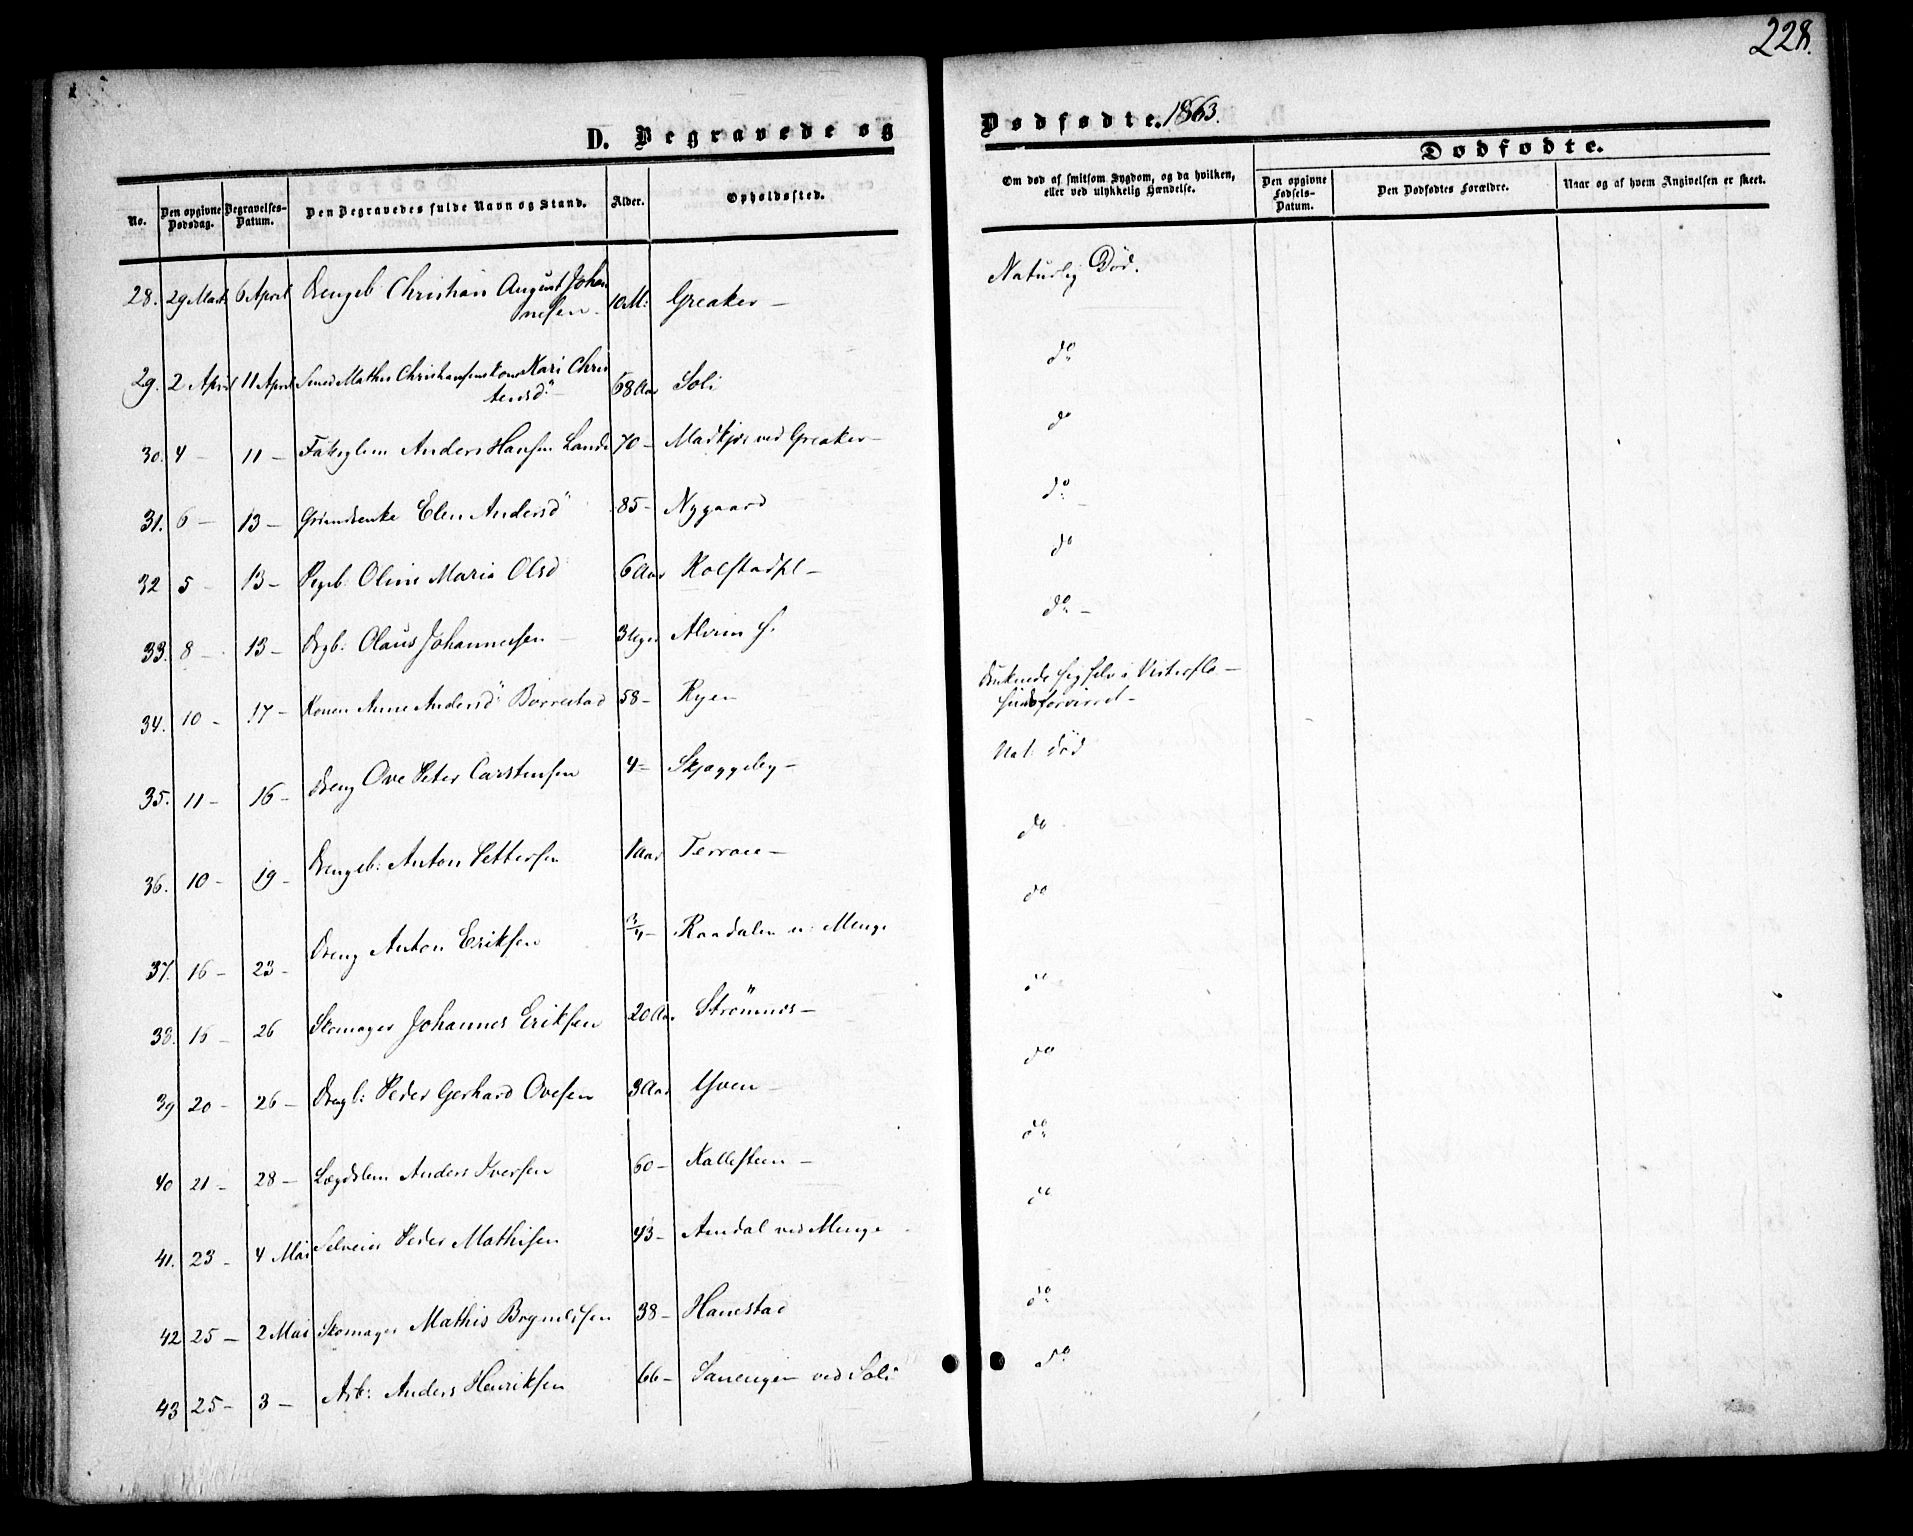 228.
D. Begravede og Dødfødte. 1863.
Dødfødte.
No. Den opgivne Dødsdag. Begravelses-Datum. Den Begravedes fulde Navn og Stand. Alder. Opholdssted. Om død af smitsom Sygdom, og da hvilken, eller ved ulykkelig Hændelse. Den opgivne Fødsels-Datum. Den Dødfødtes Forældre. Naar og af hvem Angivelsen er skeet.
28. 29 Marts 6 April Drengeb Christian August Johan 10 M: Greaker — Naturlig Død.
nesen.
29. 2 April 11 April Smed Mathis Christiansens Kone Kari Chris 68 Aar Soli do
tensd:
30. 4 — 11 — Anders Hansen Lande 70 — ved Greaker — do
31. 6 — 13 — Elen Andersd 85 — Nygaard do
32 5 — 13 — Pigeb. Oline Maria Olsd 6 Aar Kolstadpl — do
33. 8 — 13 — Drgb: Olaus Johannesen — 3 Uger Alvim do —
34. 10 — 17 — Konen Anne Andersd Borrestad 58 — Ryen druknede sig selv i Vesterflo —
sindsforvirret —
35. 11 — 16 — Dreng Ove Peter Carstensen 4 — Skjæggeby — Nat: død
36. 10 — 19 — Drengeb: Anton Pettersen 1 Aar Terrace — do
37. 16 — 23 — Dreng Anton Eriksen 3/4 — Raadalen u: Menge do
38. 16 — 26 Skomager Johannes Eriksen 20 Aar Strømnes — do
39 20 — 26 — Drengb: Peder Gerhard Ovesen 3 Aar Yven — do
40 21 — 28 — Lægdslem Anders Iversen 60 — Kallesteen — do
41. 23 — 4 Mai Selveier Peder Mathisen 43 — ved Menge do
42 25 — 2 Mai Skomager Mathis Brynildsen 38 — Hanestad do
43 25 — 3 — Arb: Anders Henriksen 66 — ved Soli do